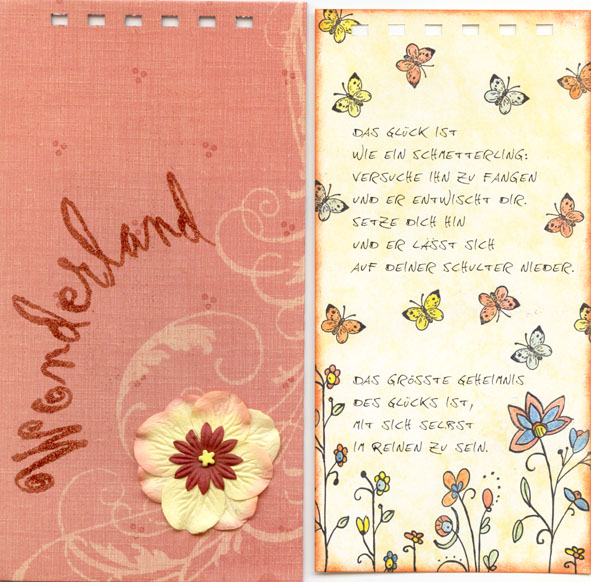 Wonderland
DAS GLÜCK IST
WIE EIN SCHMETTERLING:
VERSUCHE IHN ZU FANGEN
UND ER ENTWISCHT DIR.
SETZE DICH HIN
UND ER LÄSST SICH
AUF DEINER SCHULTER NIEDER.
DAS GRÖSSTE GEHEIMNIS
DES GLÜCKS IST,
MIT SICH SELBST
IM REINEN ZU SEIN.